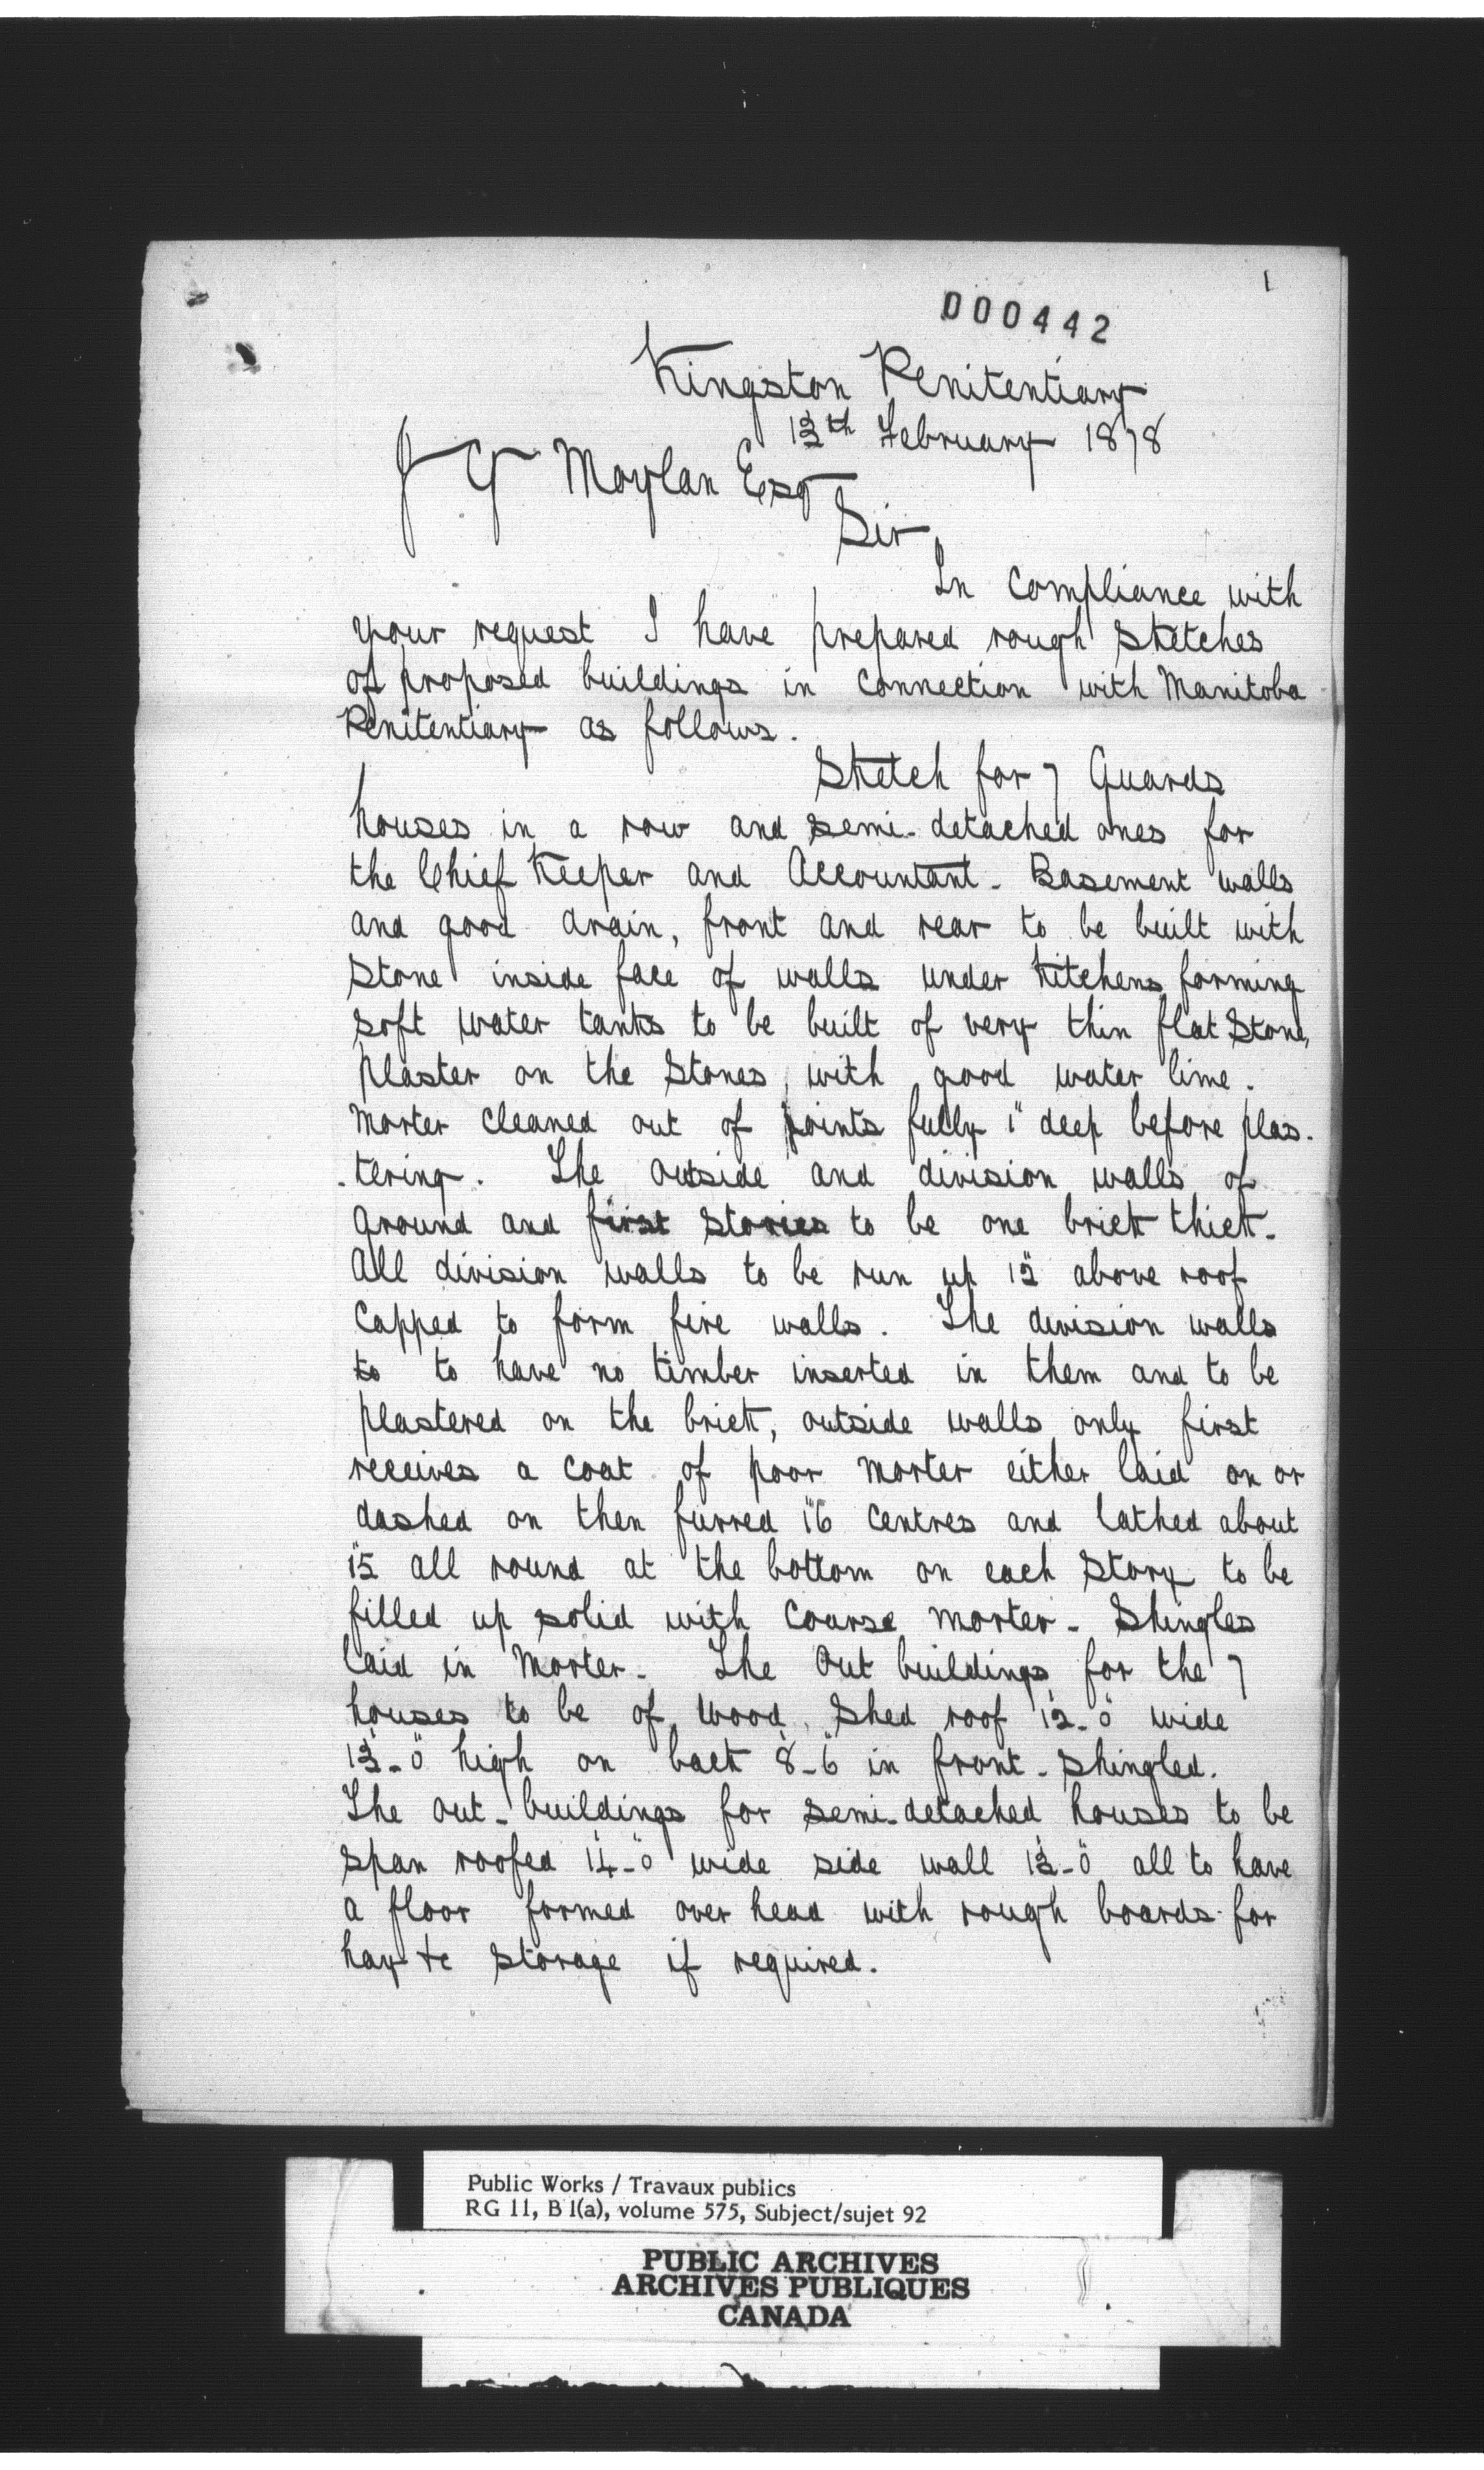 1
000442
Kingston Penitentiary
13th February 1878
J G Moylan Esq
Sir,
In compliance with
your request I have prepared rough sketches
of proposed buildings in connection with Manitoba
Penitentiary as follows.
Sketch for 7 Guards
houses in a row and semi-detached ones for
the Chief Keeper and Accountant - Basement walls
and good drain, front and rear to be built with
stone inside face of walls under kitchens forming
soft water tanks to be built of very thin flat stone,
plaster on the stones, with good water lime.
Morter cleaned out of joints fully 1" deep before plas-
-tering. The outside and division walls of
ground and first stories to be one brick thick -
All division walls to be run up 12" above roof
capped to form fire walls. The division walls
to to have no timber inserted in them and to be
plastered on the brick, outside walls only first
receives a coat of poor morter either laid on or
dashed on then furred 16" centres and lathed about
15" all round at the bottom on each story to be
filled up solid with course morter - Shingles
laid in morter - The Out buildings for the 7
houses to be of wood, shed roof 12'-0" wide
13'-0" high on back 8'-6" in front - shingled.
The out-buildings for semi-detached houses to be
span roofed 14'-0" wide side wall 13'-0" all to have
a floor formed over head with rough boards for
hay &c storage if required.
Public Works / Travaux publics
RG 11, B 1(a), volume 575, Subject/sujet 92
PUBLIC ARCHIVES
ARCHIVES PUBLIQUES
CANADA